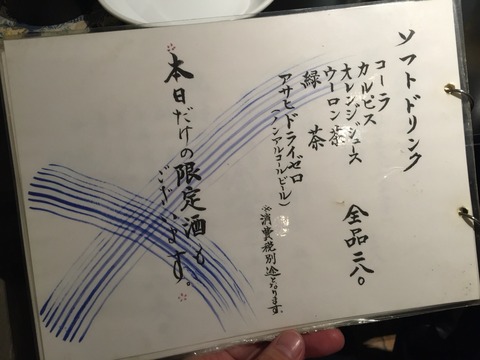 ソフトドリンク
コーラ
カルピス
オレンジジュース
ウーロン茶
緑茶
アサヒドライゼロ
(ノンアルコールビール)
全品二八〇
※消費税別途となります。
本日だけの限定酒も
ございます。